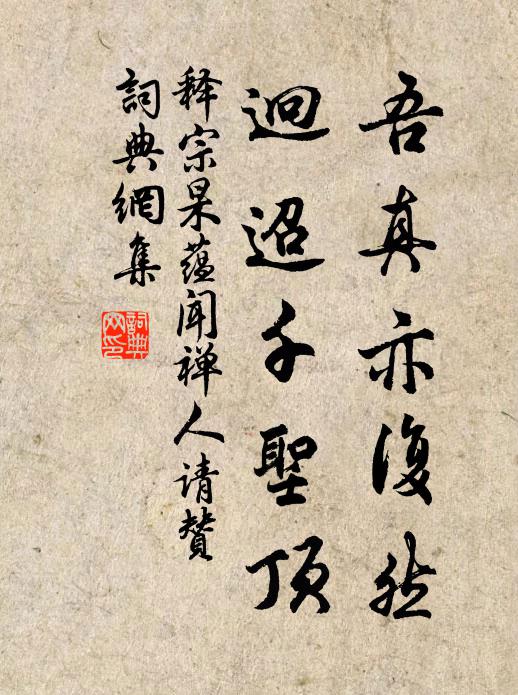 吾真亦復然
迥迢千聖顶
释宗杲蕴闻禅人请赞
詞典網集
詞典网印